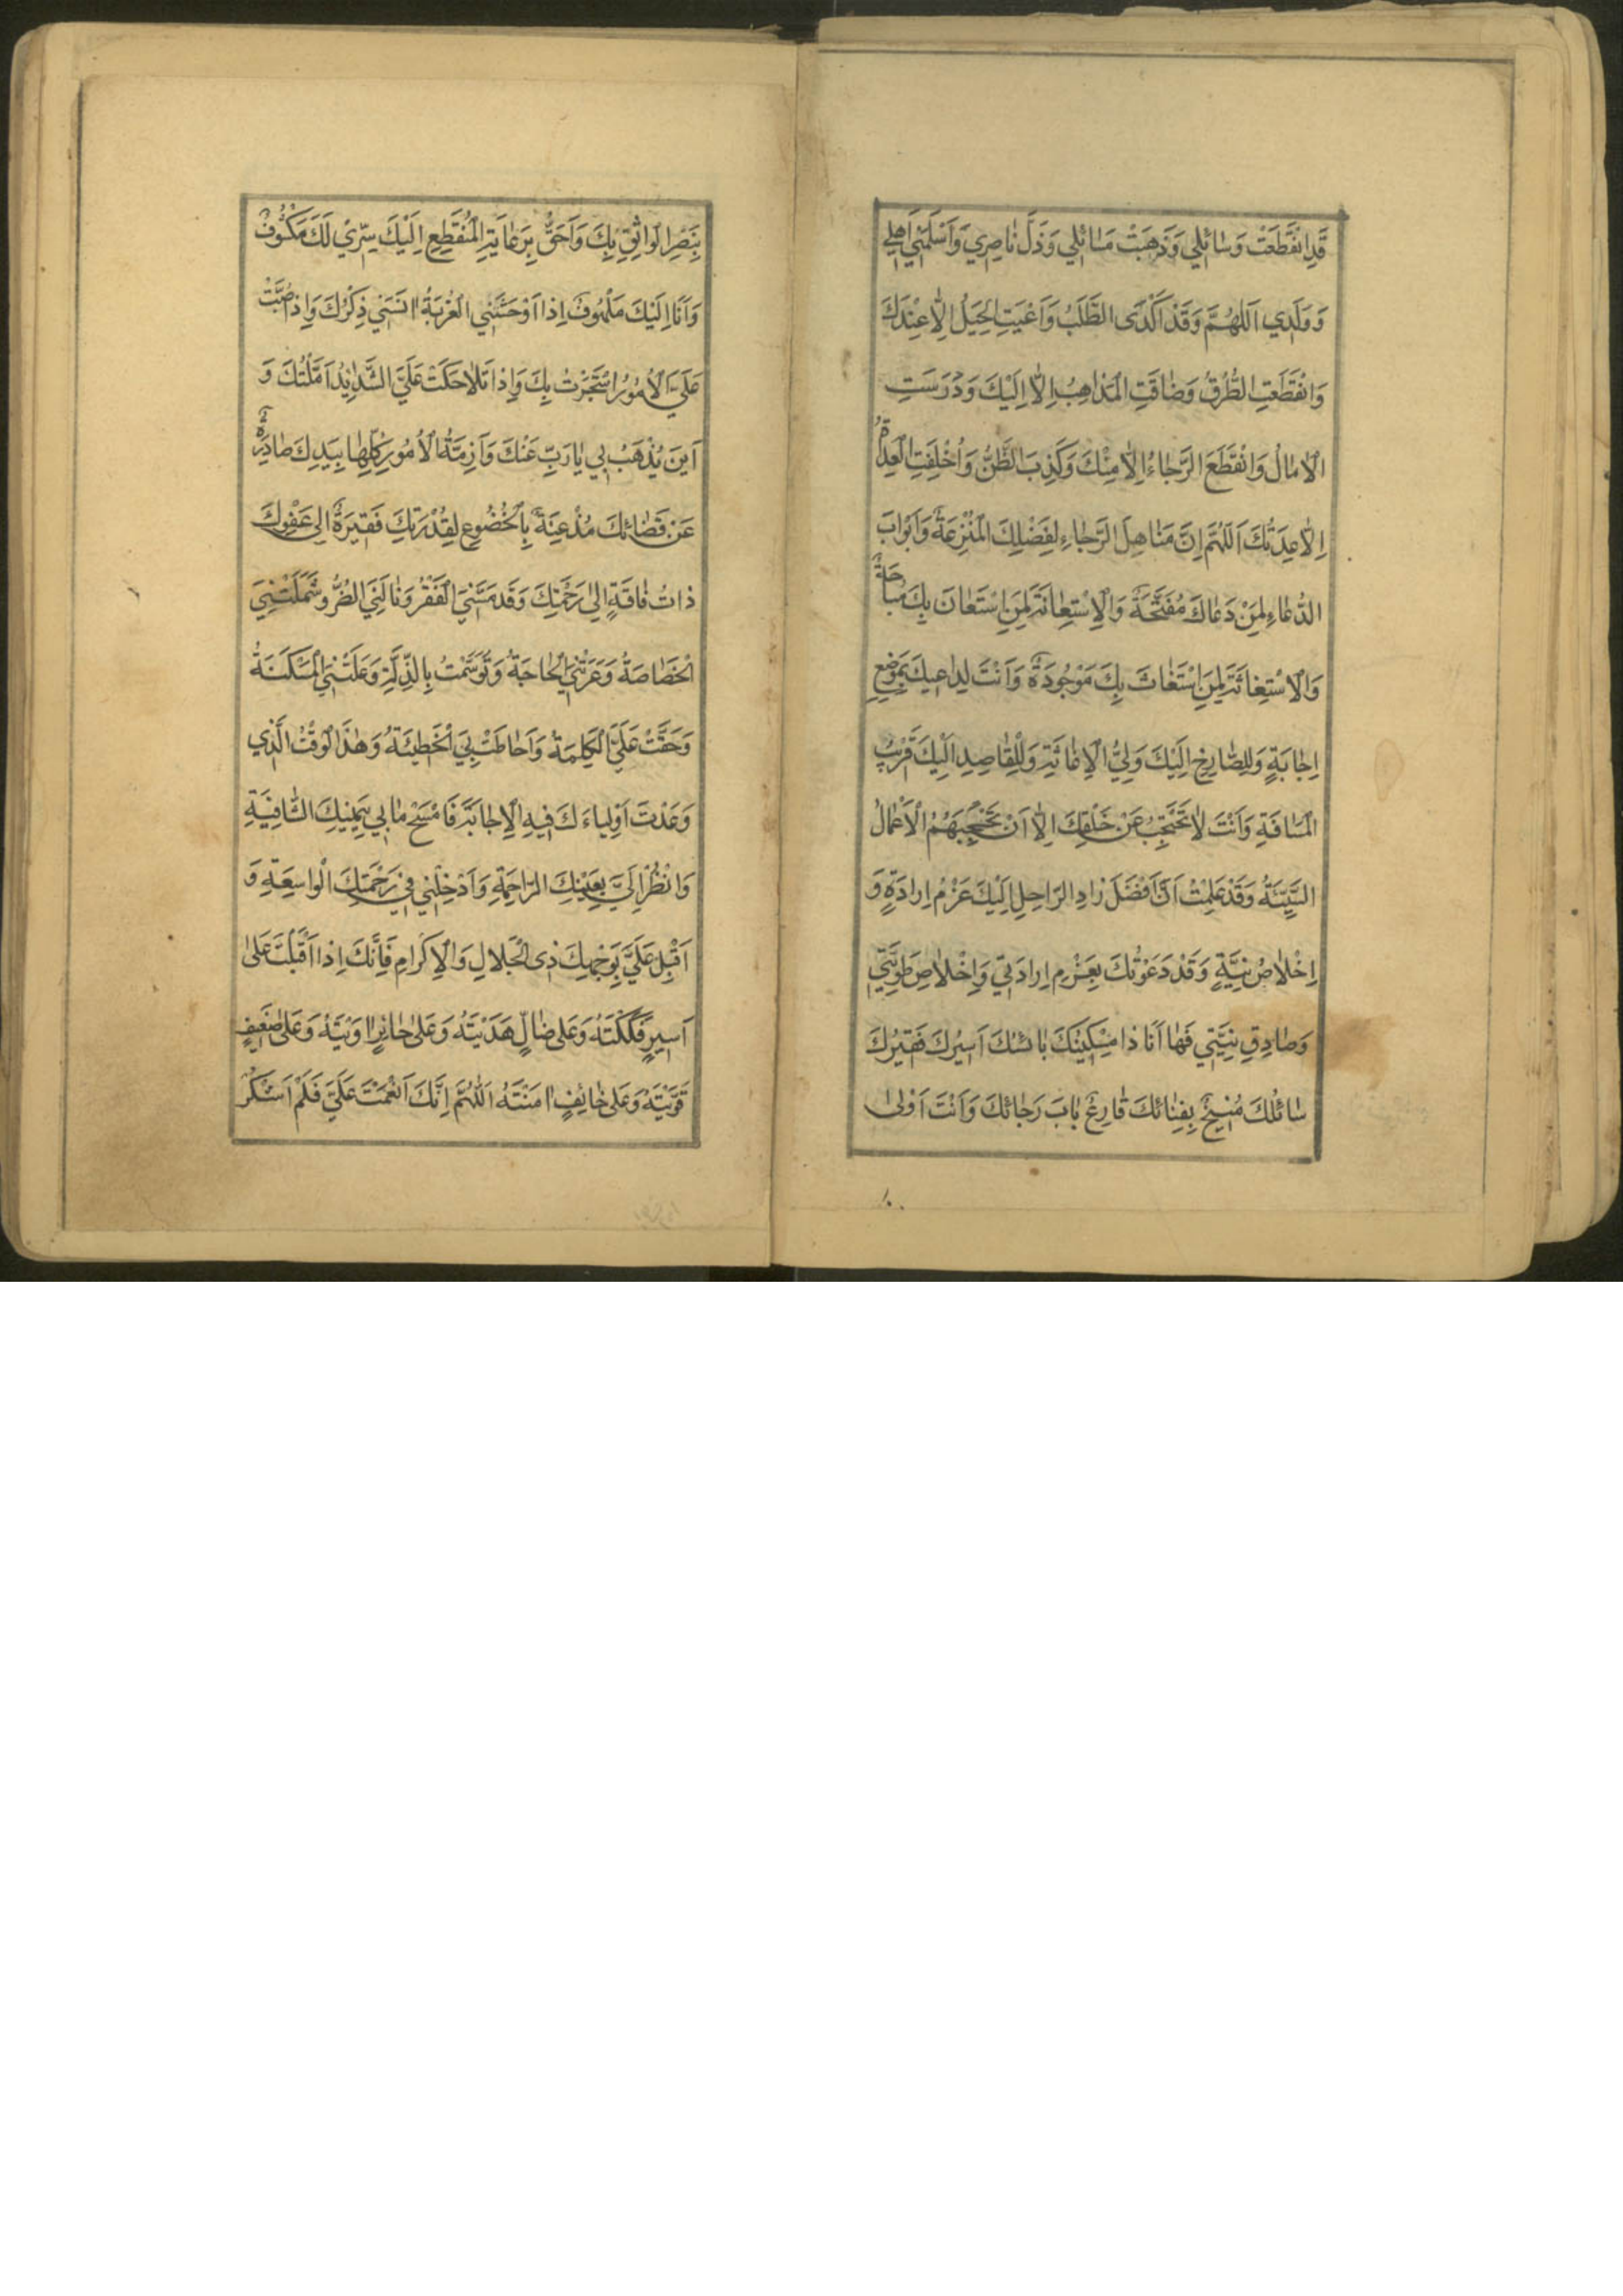 قَدِ انْقَطَعَتْ وَسٰائِلي وَذَهَبَتْ مَسٰائِلي وَذَلَّ نٰاصِرِي وَاَسْلَمَنِي اَهْلِي
وَوَلَدِي اَللّٰهُمَّ وَقَدْ اَكْدَى الطَّلَبُ وَاَعْيَتِ الْحِيَلُ اِلّٰا عِنْدَكَ
وَانْقَطَعَتِ الطُّرُقُ وَضٰاقَتِ الْمَذٰاهِبُ اِلّٰا اِلَيْكَ وَدَرَسَتِ
الْاٰمٰالُ وَانْقَطَعَ الرَّجٰاءُ اِلّٰا مِنْكَ وَكَذِبَ الظَّنُّ وَاُخْلِفَتِ الْعِدٰاةُ
اِلّٰا عِدَتُكَ اَللّٰهُمَّ اِنَّ مَنٰاهِلَ الرَّجٰاءِ لِفَضْلِكَ الْمُنْزِعَةٌ وَاَبْوٰابَ
الدُّعٰاءِ لِمَنْ دَعٰاكَ مُفَتَّحَةٌ وَالْاِسْتِعٰانَةَ لِمَنِ اسْتَعٰانَ بِكَ مُبٰاحَةٌ
وَالْاِسْتِغٰاثَةَ لِمَنِ اسْتَغٰاثَ بِكَ مَوْجُودَةٌ وَاَنْتَ لِدٰاعِيكَ بِمَوْضِعِ
اِجٰابَةٍ وَلِلصّٰارِخِ اِلَيْكَ وَلِيُّ الْاِغٰاثَةِ وَلِلْقٰاصِدِ اِلَيْكَ قَرْيبُ
الْمَسٰافَةِ وَاَنْتَ لٰا تَحْتَجِبُ عَنْ خَلْقِكَ اِلّٰا اَنْ تَحْجُبَهُمُ الْاَعْمٰالُ
السَّيِّئَةُ وَقَدْ عَلِمْتُ اَنَّ اَفْضَلَ زٰادِ الرّٰاحِلِ اِلَيْكَ عَزْمُ اِرٰادَةٍ وَ
اِخْلٰاصُ نِيَّةٍ وَقَدْ دَعَوْتُكَ بِعَزْمِ اِرٰادَتِي وَاِخْلٰاصِ طَوِيَّتِي
وَصٰادِقِ نِيَّتِي فَهٰا اَنَا ذٰا مِسْكِينُكَ بٰائِسُكَ اَسِيرُكَ فَقِيرُكَ
سٰائِلُكَ مُنِيخٌ بِفِنٰائِكَ قٰارِعٌ بٰابَ رَجٰائِكَ وَاَنْتَ اَوْلىٰ
بِنَصْرِ الْوٰاثِقِ بِكَ وَاَحَقُّ بِرِعٰايَةِ الْمُنْقَطِعِ اِلَيْكَ سِرِّي لَكَ مَكْشُوفٌ
وَاَنَا اِلَيْكَ مَلْهُوفٌ اِذٰا اَوْحَشَتْنِي الْغُرْبَةُ اٰنَسَنِي ذِكْرُكَ وَاِذٰا صُبَّتْ
عَلَيَّ الْاُمُورُ اسْتَجَرْتُ بِكَ وَاِذٰا تَلٰاحَكَتْ عَلَيَّ الشَّدٰايِدُ اَمَّلْتُكَ وَ
اَيْنَ يُذْهَبُ بِي يٰا رَبِّ عَنْكَ وَاَزِمَّةُ الْاُمُورِ كُلِّهٰا بِيَدِكَ صٰادِرَةٌ
عَنْ قَضٰائِكَ مُذْعِنَةٌ بِالْخُضُوعِ لِقُدْرَتِكَ فَقِيرَةٌ اِلىٰ عَفْوِكَ
ذٰاتُ فٰاقَةٍ اِلىٰ رَحْمَتِكَ وَقَدْ مَسَّنِيَ الْفَقْرُ وَنٰالَنِيَ الضُّرُّ وَشَمَلَتْنِيَ
الْخَصٰاصَةُ وَعَرَتْنِيَ الْحٰاجَةُ وَتَوَسَّمْتُ بِالذِّلَّةِ وَعَلَتْنِيَ الْمَسْكَنَةُ
وَحَقَّتْ عَلَيَّ الْكَلِمَةُ وَاَحٰاطَتْ بِيَ الْخَطِيئَةُ وَهٰذَا الْوَقْتُ الَّذِي
وَعَدْتَ اَوْلِيٰاءَكَ فِيهِ الْاِجٰابَةَ فَامْسَحْ مٰا بِي بِيَمِينِكَ الشّٰافِيَةِ
وَانْظُرْ اِلَيَّ بِعَيْنِكَ الرّٰاحِمَةِ وَاَدْخِلْنِي فِي رَحْمَتِكَ الْوٰاسِعَةِ وَ
اَقْبِلْ عَلَيَّ بِوَجْهِكَ ذِى الْجَلٰالِ وَالْاِكْرٰامِ فَاِنَّكَ اِذٰا اَقْبَلْتَ عَلىٰ
اَسِيرٍ فَكَكْتَهُ وَعَلىٰ ضٰالٍّ هَدَيْتَهُ وَعَلىٰ حٰائِرٍ اٰوَيْتَهُ وَعَلىٰ ضَعِيفٍ
قَوَّيْتَهُ وَعَلىٰ خٰائِفٍ اٰمَنْتَهُ اَللّٰهُمَّ اِنَّكَ اَنْعَمْتَ عَلَيَّ فَلَمْ اَشْكُرْ